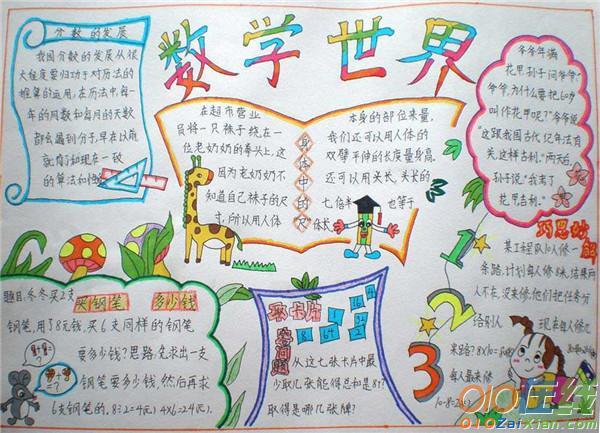 数学世界
分数的发展
我国分数的发展从很
大程度要归功于对历法的
推算的运用,在历法中,每一
年的周数和每月的天数
都会遇到分子,早在以前
就有了和现在一致
的算法如性
在超市营业
员将一只袜子绕在一
位老奶奶的拳头上,这
因为老奶奶不
知道自己袜子的尺
寸,所以用人体
身体中的尺
本身的部位来量,
我们还可以用人体的
双臂平伸的长度量身高,
还可以用头长,头长的
七倍半也等于
体长
爷爷年满
花甲,孙子问爷爷:
"爷爷,为什么要把60岁
叫作花甲呢?"爷爷说
"这跟我国古代纪年法有
关,这样吉利。"两天后,
孙子说:"我去了
花甲吉利。"
题目:冬冬买2支
买钢笔 多少钱
钢笔,用了8元钱,买6支同样的钢笔
要多少钱?思路:先求出一支
钢笔要多少钱,然后再求
6支钢笔的。8÷2=4(元) 4×6=24(元)。
取卡片
空间题
8 64 32 2
从这七张卡片中最
少取几张能得总和是81?
取得是哪几张牌?
1 2 3
巧思妙解
某工程队10人修一
条路,计划每人修8米,结果两
人不在,没来修,他们把任务分
给别人 现在每人修几
米路?8×10=80(米)
每人最来修
10-8=2(人)
010在线
010ZaiXian.com